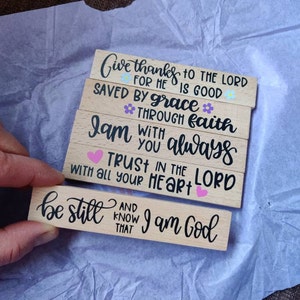 Give thanks TO THE LORD
FOR HE IS GOOD
SAVED BY grace
THROUGH faith
I am WITH
YOU always
TRUST IN THE LORD
WITH ALL YOUR HEART
be still AND
KNOW
THAT I am God